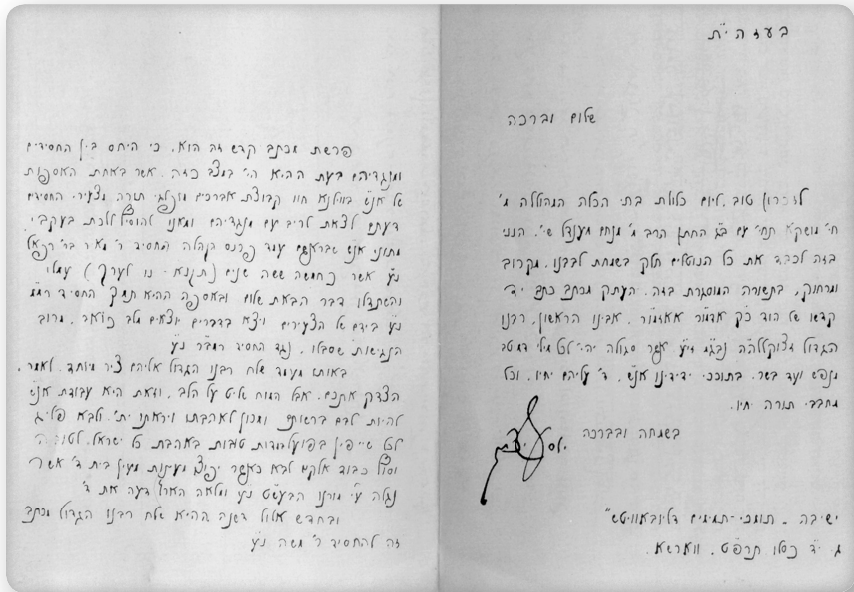 בעזהי"ת
שלום וברכה
לזכרון טוב, ליום כלולת בתי הכלה המהוללה מ'
חי' מושקא תחי' עם ב"ג החתן הרב מ' מנחם מענדל שי', הנני
בזה לכבד את כל הנוטלים חלק בשמחת לבבנו, מקרוב
ומרחוק, בתשורה המוסגרת בזה, העתק מכתב כתב יד
קדשו של הוד כ"ק אדמו"ר אאזמו"ר, אבינו הראשון, רבנו
הגדול זצוקללה"ה נבג"מ זי"ע אשר סגולה יהי' לכל מילי דמטב
מנפש ועד בשר, בתוככי ידידינו אנ"ש, ד' עליהם יחיו, וכל
מחבבי תורה יחיו.
בשמחה ובברכה
ישיבה - תומכי-תמימים דליובאוויטש"
ג' י"ד כסלו תרפ"ט, ווארשא.
פרשת מכתב קדש זה הוא, כי היחס בין החסידים
ומנגדיהם בעת ההיא הי' במצב כזה, אשר באחת האספות
של אנ"ש בווילנא חוו קבוצת אברכים מופלגי תורה מצעירי החסידים
דעתם לצאת לריב עם מנגדיהם ומאנו להוסיף ללכת בעקבי
מתוני אנ"ש שבראשם עמד פרנס הקהלה החסיד ר' מאיר בר' רפאל
נ"ע אשר כחמשה ששה שנים (תקנ"א - נו לערך) עמלו
והשתדלו דבר הבאת שלום ובאספה ההיא תמך החסיד רמ"מ
נ"ע בידם של הצעירים ויצא בדברים יוצאים מלב כואב, מרוב
הנגישות שסבלו, נגד החסיד רמב"ר נ"ע
באותו מעמד שלח רבנו הגדול אליהם ציר מיוחד, לאמר
הצדק אתכם, אבל המוח שליט על הלב, וזאת היא עבודת אנ"ש
להיות לבם ברשותם ומכון לאהבתו ויראתו ית', ולבא פליג
לכל שייפין בפועל במדות טובות באהבת כל ישראל, לטוב ה'
וסוף כבוד אלקים לבא כאשר יפוצו מעינות מעין בית ד' אשר
נגלה ע"י מורנו הבעש"ט נ"ע ומלאה הארץ דעה את ד'
ובחדש אלול דשנה ההיא שלח רבנו הגדול מכתב
זה להחסיד ר' משה נ"ע